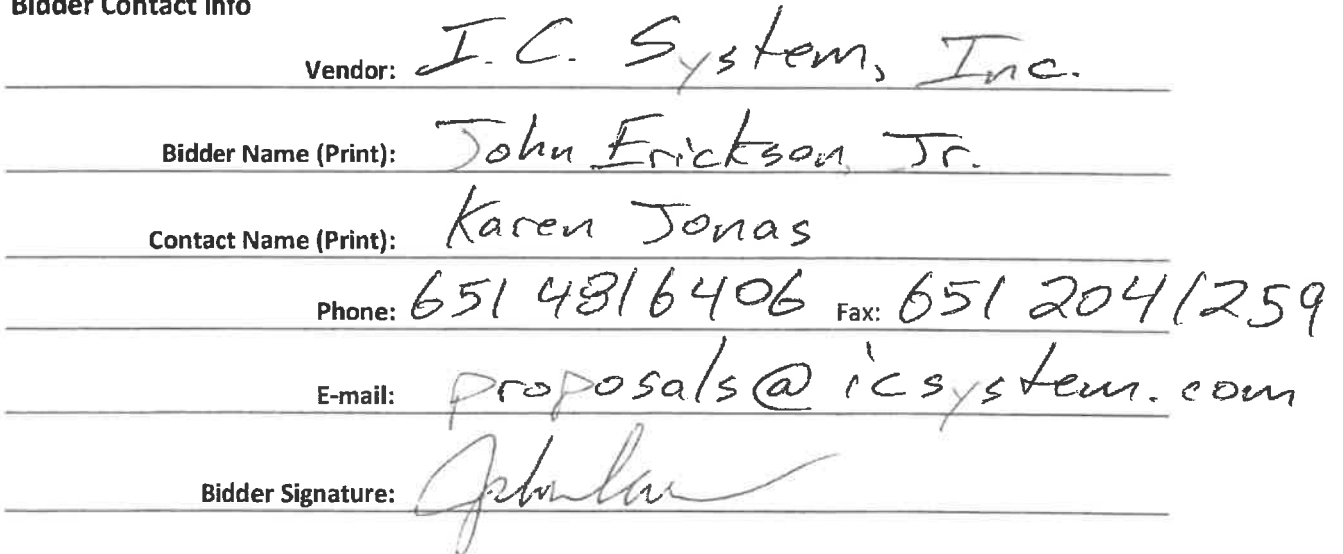 Bidder Contact Info
Vendor: I.C. System, Inc.
Bidder Name (Print): John Erickson, Jr.
Contact Name (Print): Karen Jonas
Phone: 651 481 6406 Fax: 651 204 1259
E-mail: proposals@icsystem.com
Bidder Signature: